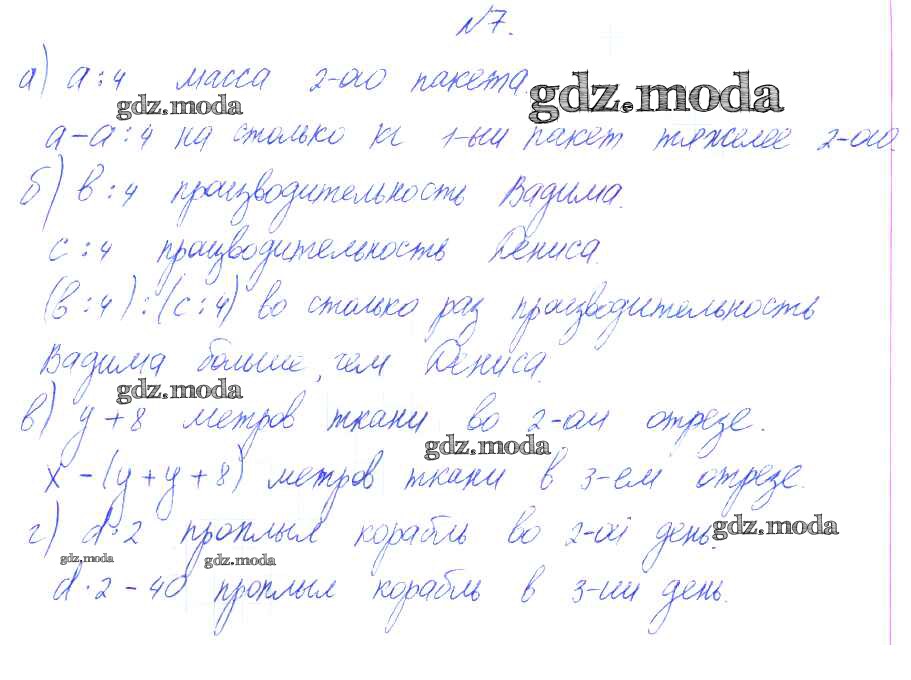 №7.
а) a:4 масса 2-ого пакета.
gdz.moda
gdz.moda
a-a:4 на столько кг 1-ый пакет тяжелее 2-ого.
б) в:4 производительность Вадима.
с:4 производительность Дениса.
(в:4):(с:4) во столько раз производительность
Вадима больше, чем Дениса.
gdz.moda
в) y+8 метров ткани во 2-ом отрезе.
gdz.moda
x-(y+y+8) метров ткани в 3-ем отрезе.
г) d·2 проплыл корабль во 2-ой день.
gdz.moda
gdz.moda
gdz.moda
d·2-40 проплыл корабль в 3-ий день.